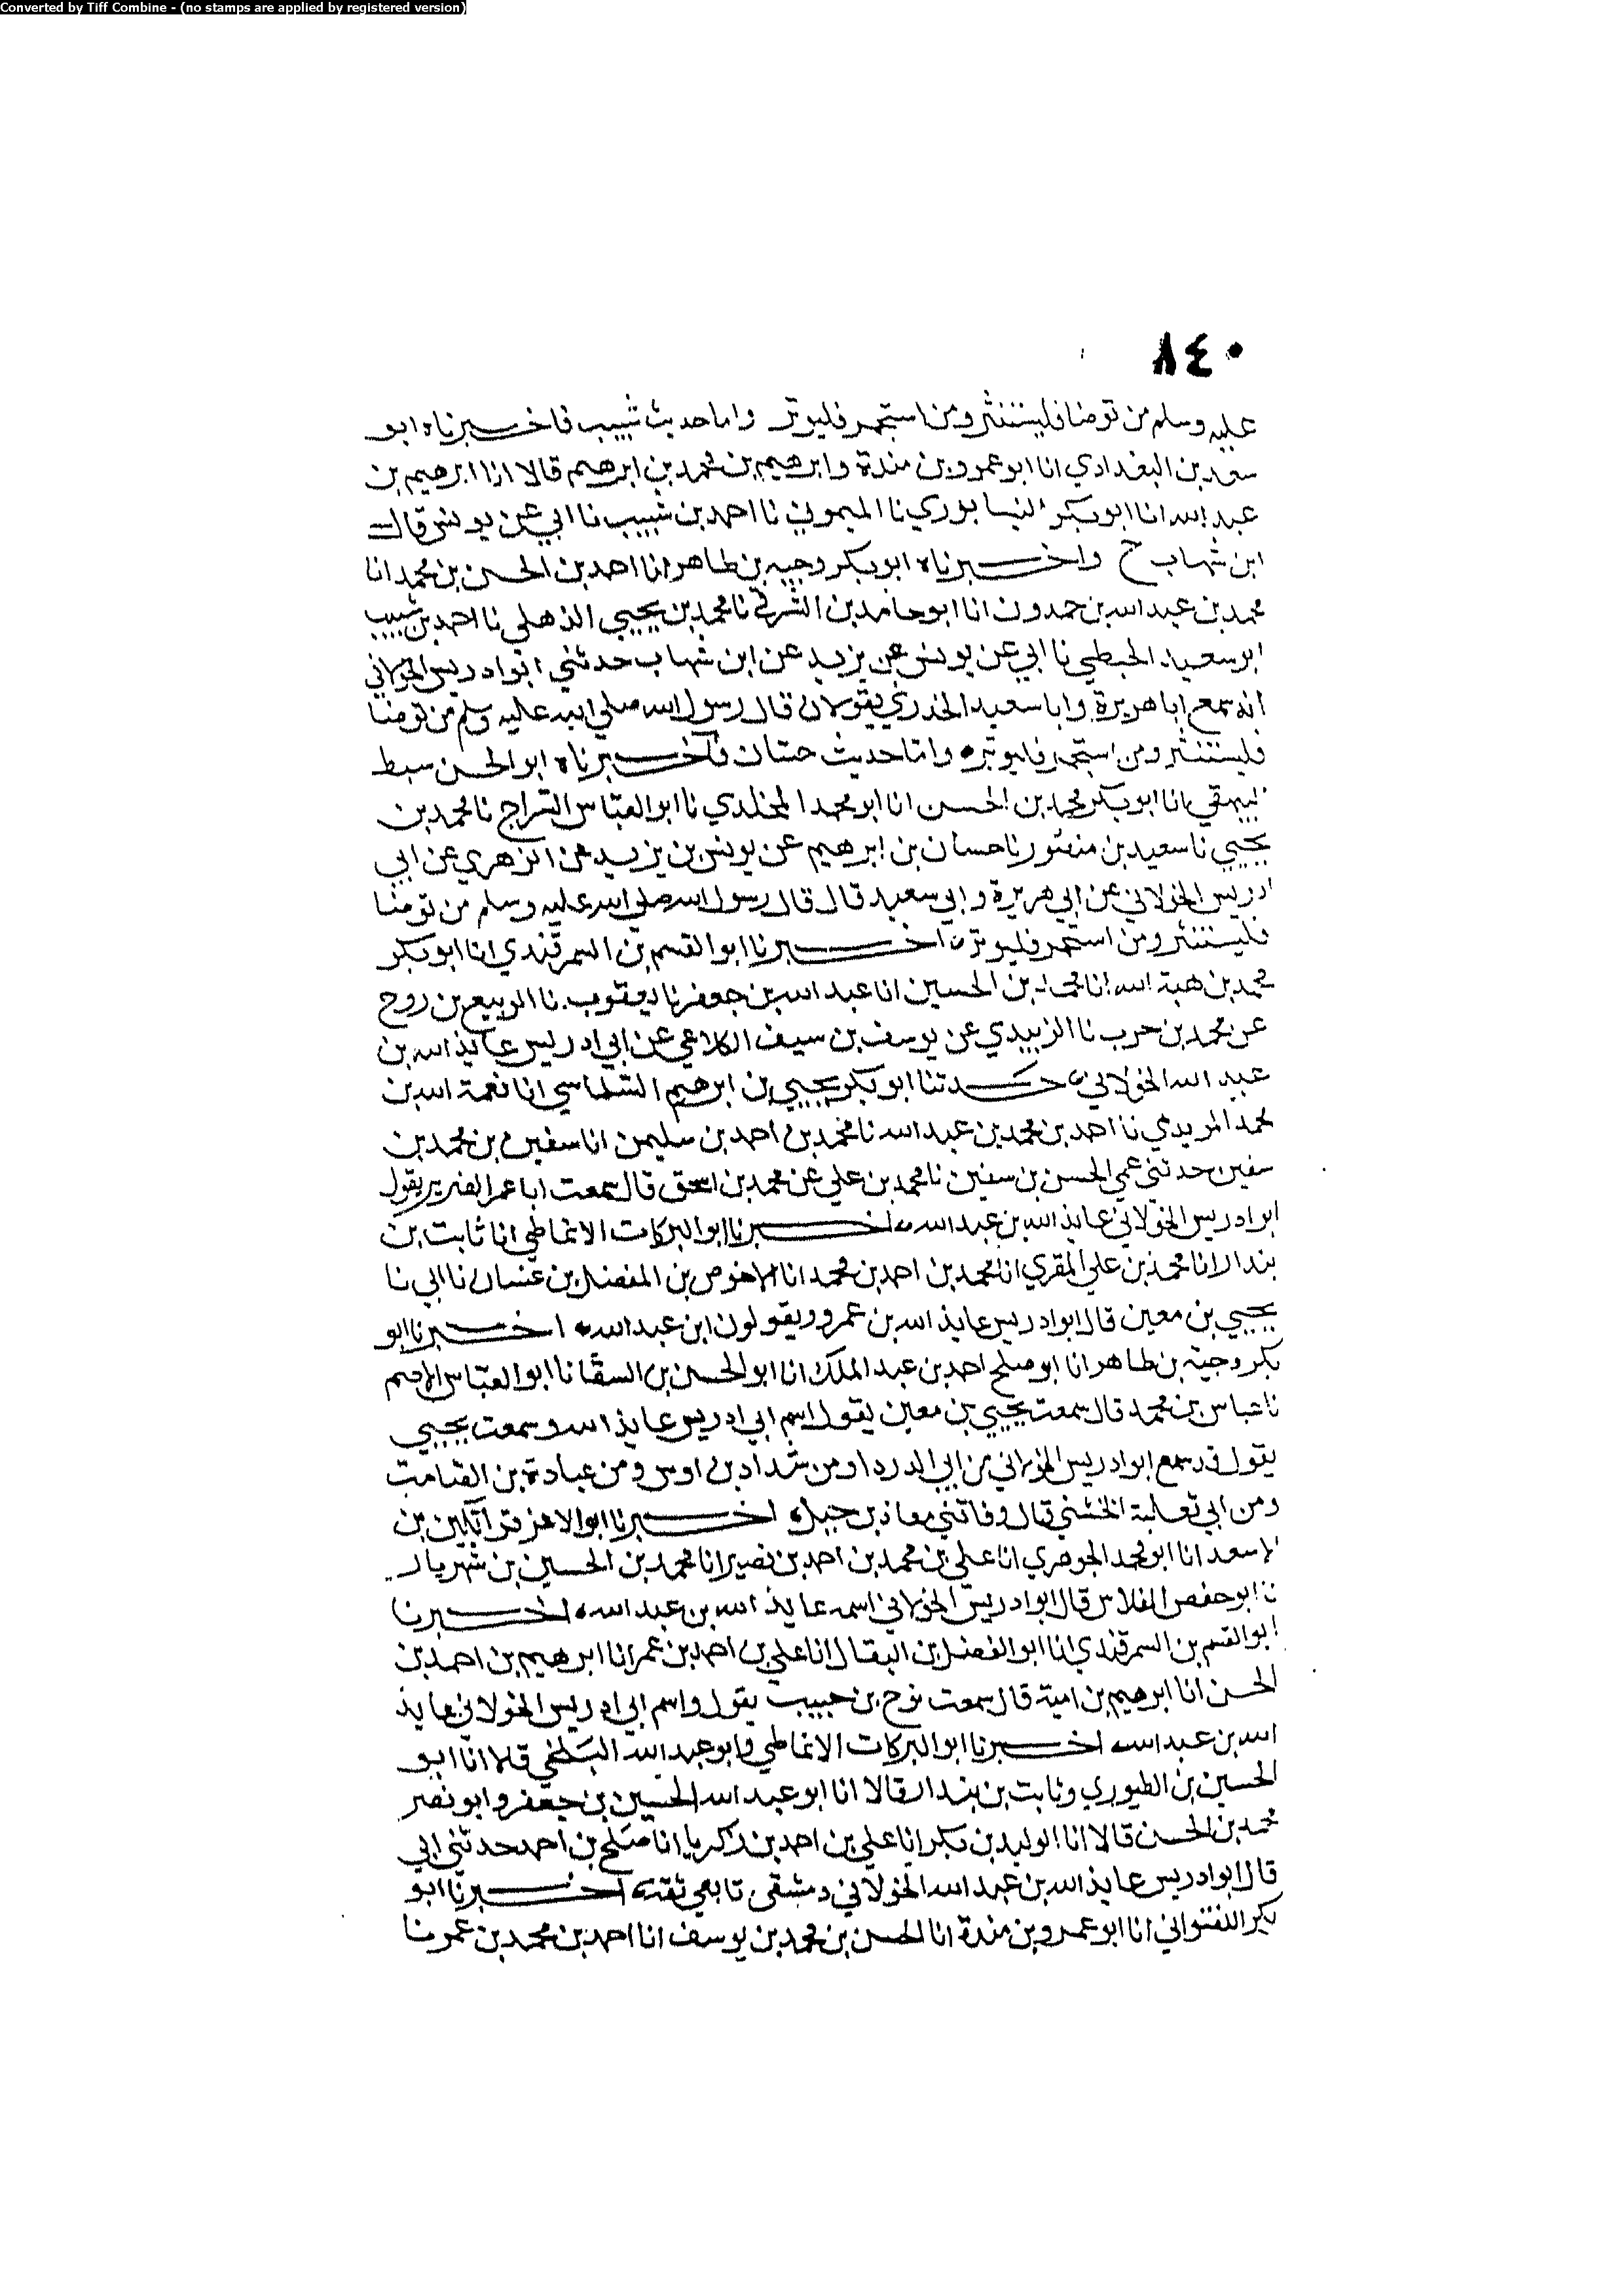 Converted by Tiff Combine - (no stamps are applied by registered version)
٨٤٠
عليه وسلم من توضا فليستنثر ومن استجمر فليوتر واما حديث شبيب فاخبرناه ابو
سعد بن البغدادي انا ابو عمرو بن مندة وابرهيم بن محمد بن ابرهيم قالا انا ابرهيم بن
عبد الله انا ابو بكر النيسابوري نا الميموني نا احمد بن شبيب نا ابي عن يونس قال
ابن شهاب ح واخبرناه ابو بكر وجيه بن طاهر انا احمد بن الحسن بن محمد انا
محمد بن عبد الله بن حمدون انا ابو حامد بن الشرقي نا محمد بن يحيي الذهلي نا احمد بن شبيب
ابو سعيد الحبطي نا ابي عن يونس عن يزيد عن ابن شهاب حدثني ابو ادريس الخولاني
انه سمع ابا هريرة وابا سعيد الخدري يقولان قال رسول الله صلي الله عليه وسلم من توضا
فليستنثر ومن استجمر فليوتر واما حديث حسان فاخبرناه ابو الحسن سبط
البيهقي انا ابو بكر محمد بن الحسن انا ابو محمد المخلدي نا ابو العباس السراج نا محمد بن
يحيي نا سعيد بن منصور نا حسان بن ابرهيم عن يونس بن يزيد عن الزهري عن ابي
ادريس الخولاني عن ابي هريرة وابي سعيد قال قال رسول الله صلي الله عليه وسلم من توضا
فليستنثر ومن استجمر فليوتر اخبرنا ابو القسم بن السمرقندي انا ابو بكر
محمد بن هبة الله انا محمد بن الحسين انا عبد الله بن جعفر نا يعقوب نا الربيع بن روح
عن محمد بن حرب نا الزبيدي عن يوسف بن سيف الكلاعي عن ابي ادريس عايذ الله بن
عبد الله الخولاني حدثنا ابو بكر يحيي بن ابرهيم السلماسي انا نعمة الله بن
محمد المرندي نا احمد بن محمد بن عبد الله نا محمد بن احمد بن سليمن انا سفين بن محمد بن
سفين حدثني عمي الحسن بن سفين نا محمد بن علي عن محمد بن اسحق قال سمعت ابا عمر الضرير يقول
ابو ادريس الخولاني عايذ الله بن عبد الله اخبرنا ابو البركات الانماطي انا ثابت بن
بندار انا محمد بن علي المقري انا محمد بن احمد بن محمد انا الاحوص بن المفضل بن غسان نا ابي نا
يحيي بن معين قال ابو ادريس عايذ الله بن عمرو ويقولون ابن عبد الله اخبرنا ابو
بكر وجيه بن طاهر انا ابو صلح احمد بن عبد الملك انا ابو الحسن بن السقا نا ابو العباس الاصم
نا عباس بن محمد قال سمعت يحيي بن معين يقول اسم ابي ادريس عايذ الله وسمعت يحيي
يقول قد سمع ابو ادريس الخولاني من ابي الدرداء ومن شداد بن اوس ومن عبادة بن الصامت
ومن ابي ثعلبة الخشني قال وفاتني معاذ بن جبل اخبرنا ابو الاعز قراتكين بن
الاسعد انا ابو محمد الجوهري انا علي بن محمد بن احمد بن نصير انا محمد بن الحسين بن شهريار
نا ابو حفص الفلاس قال ابو ادريس الخولاني اسمه عايذ الله بن عبد الله اخبرنا
ابو القسم بن السمرقندي انا ابو الفضل بن البقال انا علي بن احمد بن عمر انا ابرهيم بن احمد بن
الحسن انا ابرهيم بن امية قال سمعت نوح بن حبيب يقول واسم ابي ادريس الخولاني عايذ
الله بن عبد الله اخبرنا ابو البركات الانماطي وابو عبد الله البلخي قالا انا ابو
الحسين بن الطيوري وثابت بن بندار قالا انا ابو عبد الله الحسين بن جعفر وابو نصر
محمد بن الحسن قالا انا الوليد بن بكر انا علي بن احمد بن زكريا انا صلح بن احمد حدثني ابي
قال ابو ادريس عايذ الله بن عبد الله الخولاني دمشقي تابعي ثقة اخبرنا ابو
بكر اللفتواني انا ابو عمرو بن مندة انا الحسن بن محمد بن يوسف انا احمد بن محمد بن عمر نا